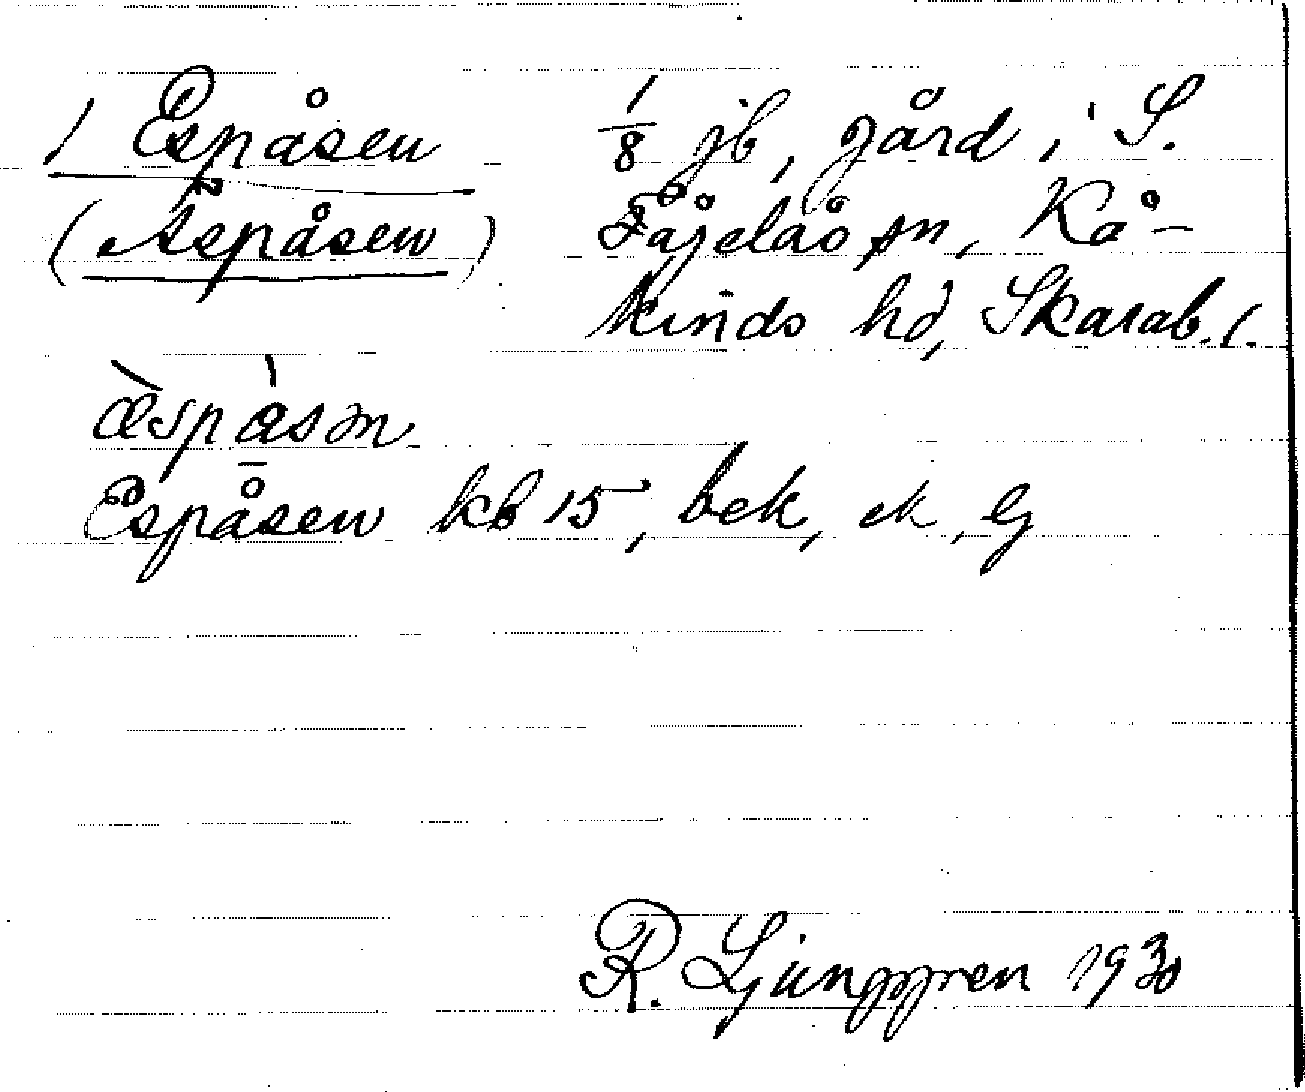 1 Espåsen 1/8 jb, gård i S.
(Aspåsen) Fågelås sn, Kå-
kinds hd, Skarab. l.
æ̀spå̀sən
Espåsen kb 15, bek, ek, Lj
R. Ljunggren 1930